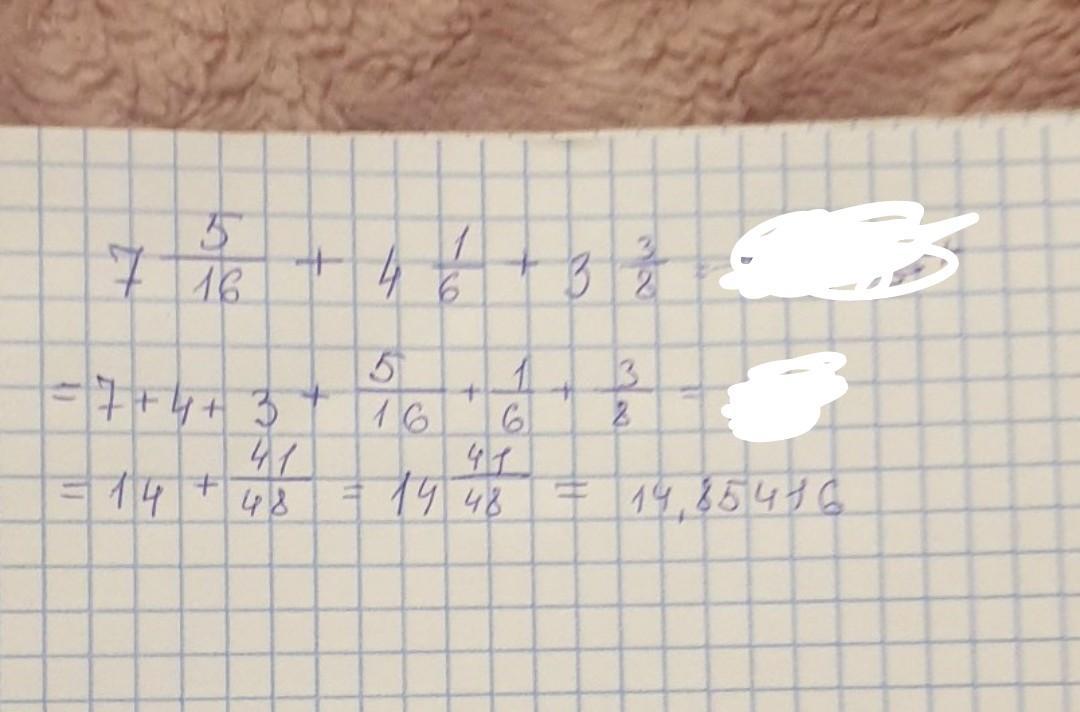 7 5/16 + 4 1/6 + 3 3/8 =
= 7 + 4 + 3 + 5/16 + 1/6 + 3/8 =
= 14 + 41/48 = 14 41/48 = 14,85416